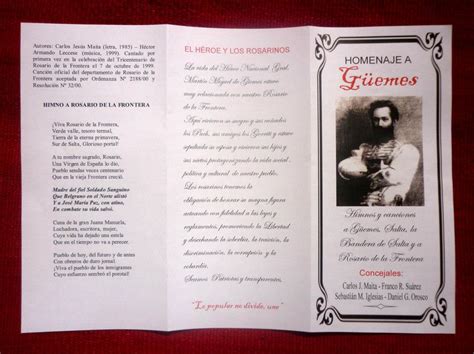 Autores: Carlos Jesús Maita (letra, 1985) – Héctor
Armando Leccese (música, 1999). Cantado por
primera vez en la celebración del Tricentenario de
Rosario de la Frontera el 7 de octubre de 1999.
Canción oficial del departamento de Rosario de la
Frontera aceptada por Ordenanza Nº 2188/00 y
Resolución Nº 32/00.
HIMNO A ROSARIO DE LA FRONTERA
¡Viva Rosario de la Frontera,
Verde valle, tesoro termal,
Tierra de la eterna primavera,
Sur de Salta, Glorioso portal!
A tu nombre sagrado, Rosario,
Una Virgen de España lo dio,
Pueblo azulas veces centenario
Que en la vieja Frontera creció.
Madre del fiel Soldado Sanguino
Que Belgrano en el Norte alistó
Y a José María Paz, con atino,
En combate su vida salvó.
Cuna de la gran Juana Manuela,
Luchadora, escritora, mujer,
Cuya vida ha dejado una estela
Que en el tiempo no va a perecer.
Pueblo de hoy, del futuro y de antes
Con obreros de duro jornal.
¡Viva el pueblo de los inmigrantes
Cuyo esfuerzo sembró el portal!
EL HÉROE Y LOS ROSARINOS
La vida del Héroe Nacional Gral.
Martín Miguel de Güemes estuvo
muy relacionada con nuestro Rosario
de la Frontera.
Aquí vivieron su suegra y sus cuñados
los Puch, sus amigos los Gorriti y estuvo
su esposa y vivieron sus hijos y
sus nietos protagonizando la vida social,
política y cultural de nuestro pueblo.
Los rosarinos tenemos la
obligación de honrar su imagen futura
actuando con fidelidad a las leyes y
reglamentos, promoviendo la Libertad y
desechando la soberbia, la traición, la
discriminación, la corrupción y la
cobardía.
Seamos Patriotas y transparentes.
"Lo popular no divide, une"
HOMENAJE A
Güemes
Himnos y canciones
a Güemes, Salta, la
Bandera de Salta y a
Rosario de la Frontera
Concejales:
Carlos J. Maita - Franco R. Suárez
Sebastián M. Iglesias - Daniel G. Orosco